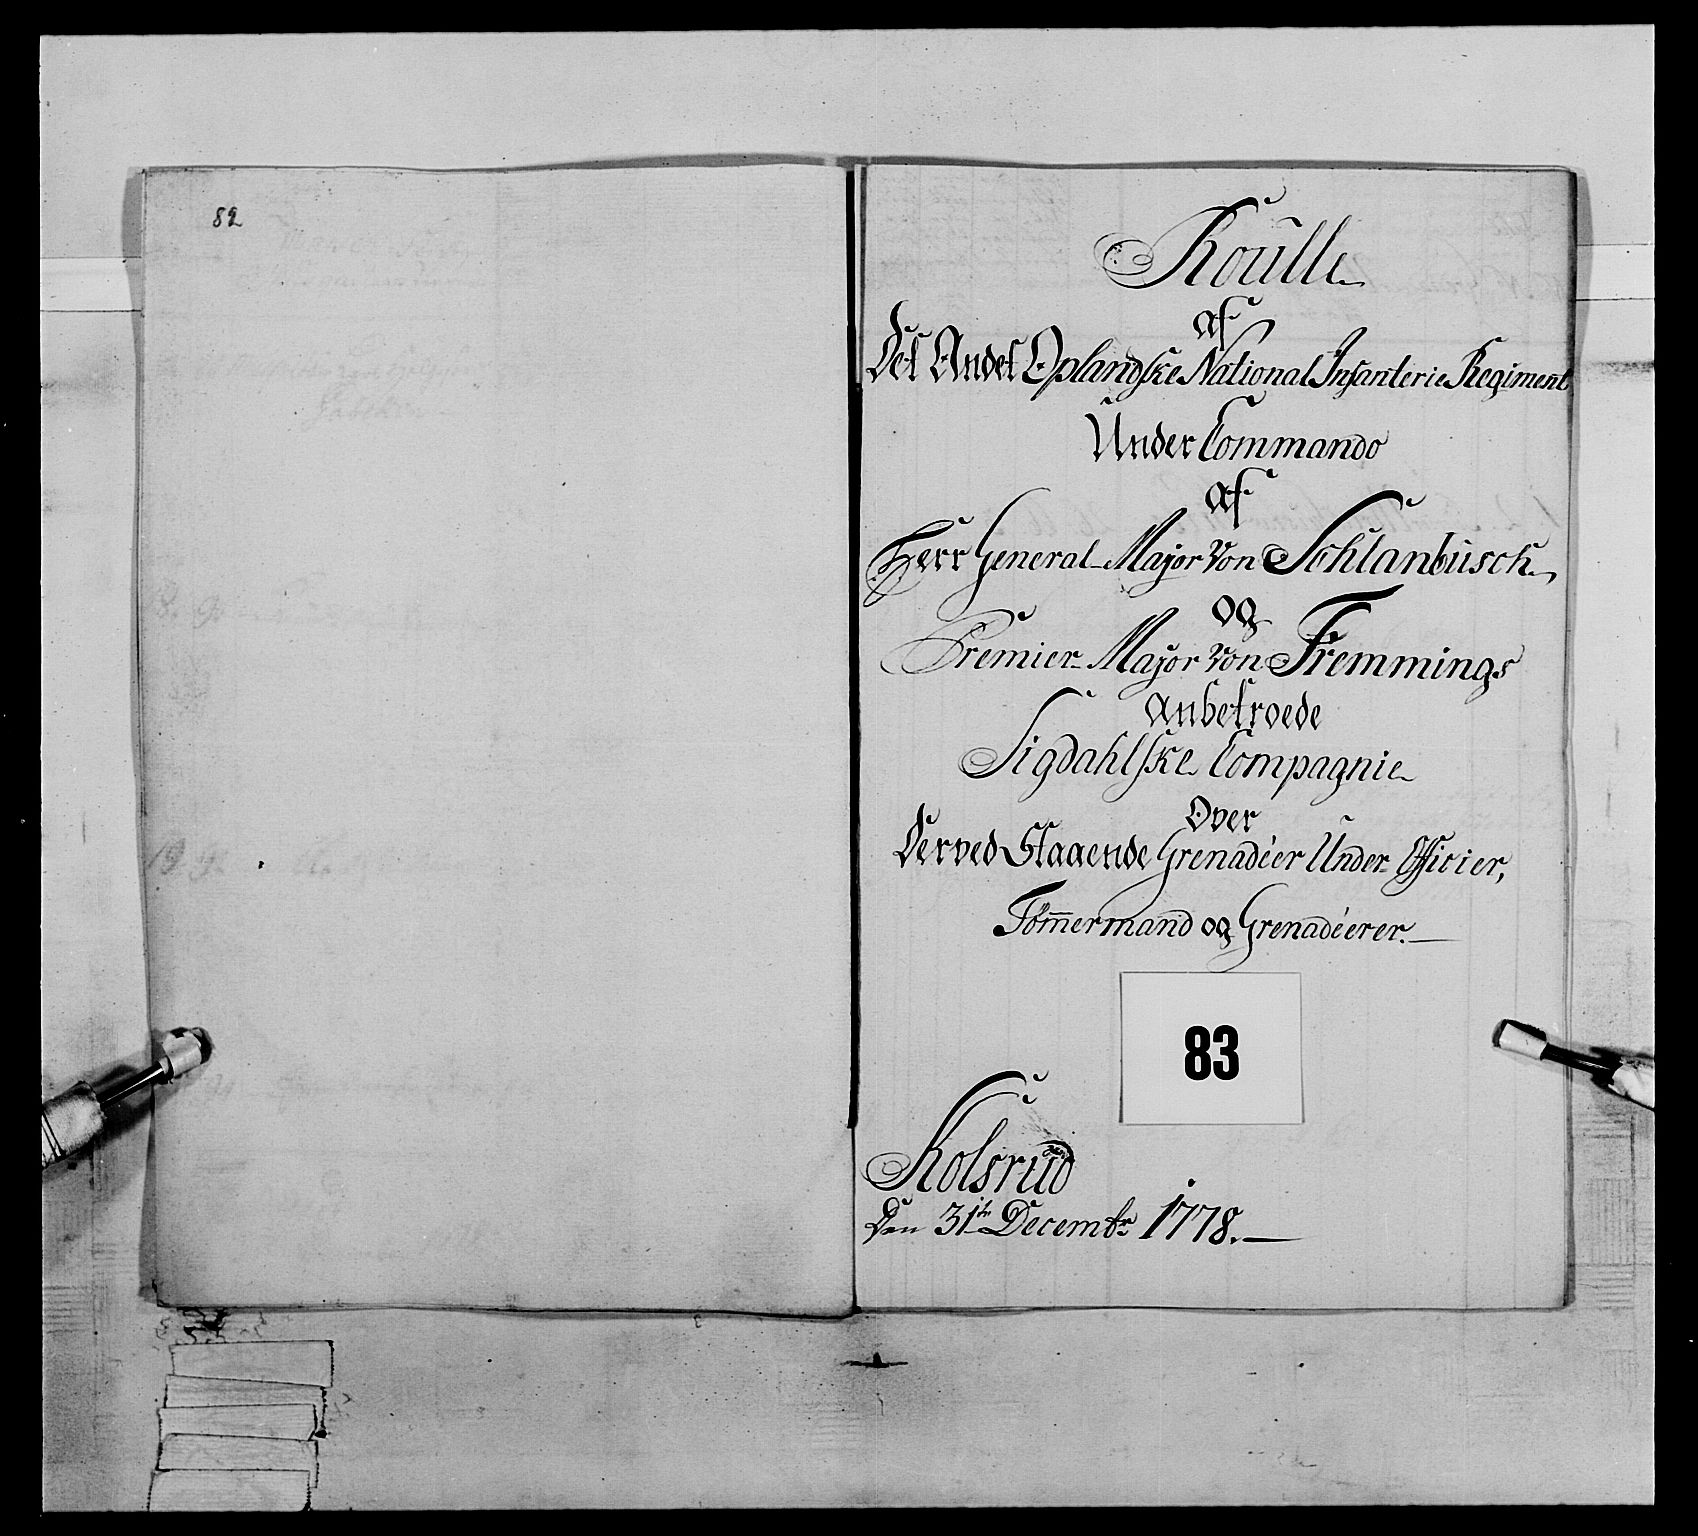 82
Roulle
af
Det Andet Oplandske National Infanterie Regiment
Under Commando
af
Herr General-Major Von Schlanbusch
og
Premier-Major Von Fremmings
anbetroede
Sigdahlske Compagnie
Over
Derved Staaende Grenadéer Under-Officier,
Tom̄ermand og Grenadéerer.
83
Kolsrud
Den 31te Decembr 1778.